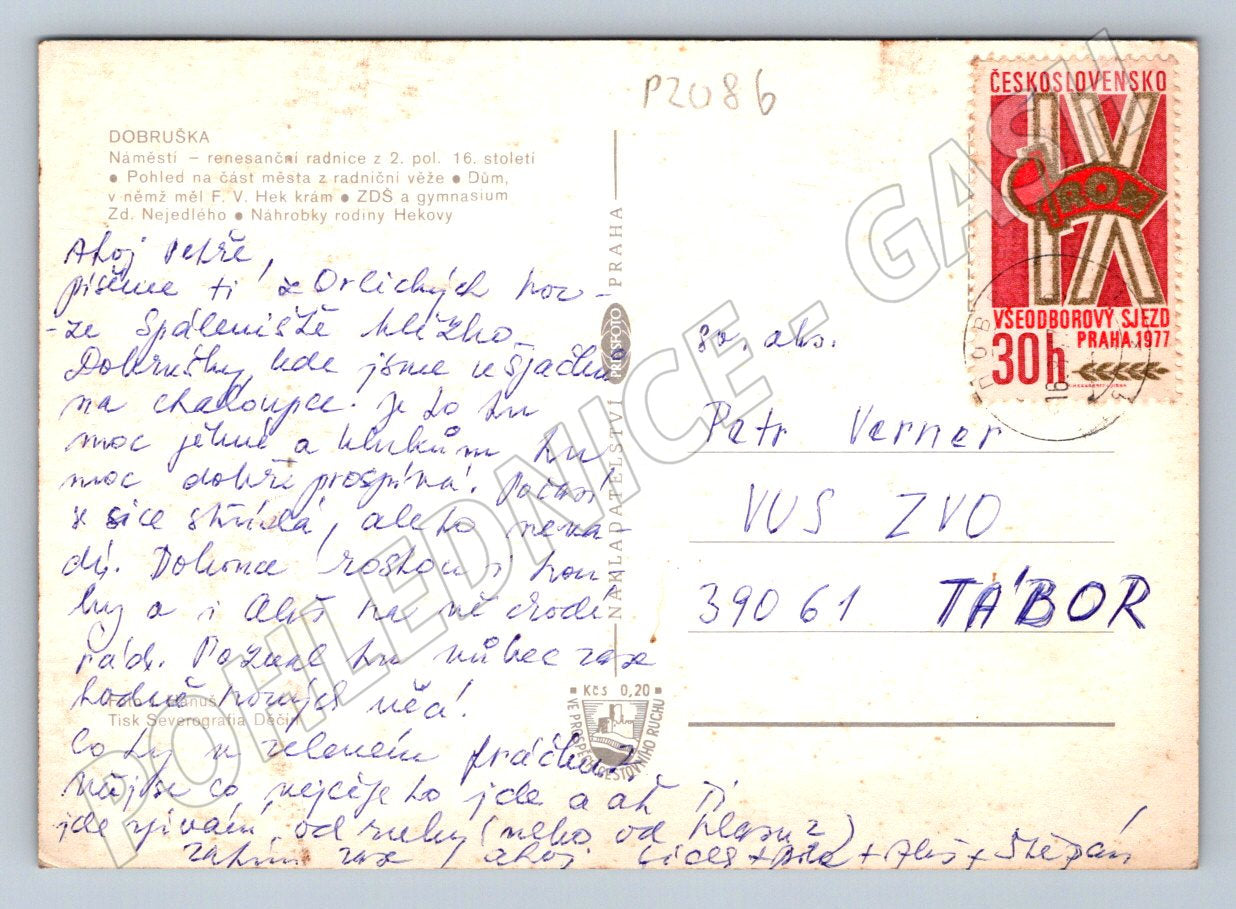 P2086
DOBRUŠKA
Náměstí – renesanční radnice z 2. pol. 16. století
● Pohled na část města z radniční věže ● Dům,
v němž měl F. V. Hek krám ● ZDŠ a gymnasium
Zd. Nejedlého ● Náhrobky rodiny Hekovy
Ahoj Petře,
píšeme ti z Orlických hor -
- ze Spáleniště blízko
Dobrušky, kde jsme
na chaloupce. Je to tu
moc pěkné a klukům tu
moc dobře prospívá. Počasí
se sice střídá, ale to neva-
dí. Dokonce rostou i hou-
by a i Aleš na ně chodí
rád. Poznal tu vůbec zase
hodně nových věcí.
Foto
Tisk Severografia Děčín
Co ty v zeleném
Měj se co nejlépe to jde a ať Ti
jde zpívání od ruky (nebo od hlasu?)
zatím zase ahoj + Aleš + Štěpán
NAKLADATELSTVÍ PRESSFOTO PRAHA
■ Kčs 0,20 ■
VE PROSPĚCH CESTOVNÍHO RUCHU
ČESKOSLOVENSKO
IX
ROH
VŠEODBOROVÝ SJEZD
PRAHA 1977
30h
Petr Verner
VUS ZVO
39061 TÁBOR
POHLEDNICE - GASH